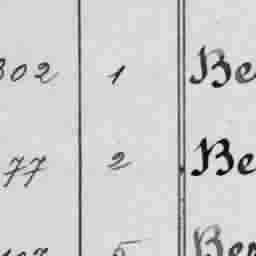 302 1 Be
77 2 Be
5 Ber